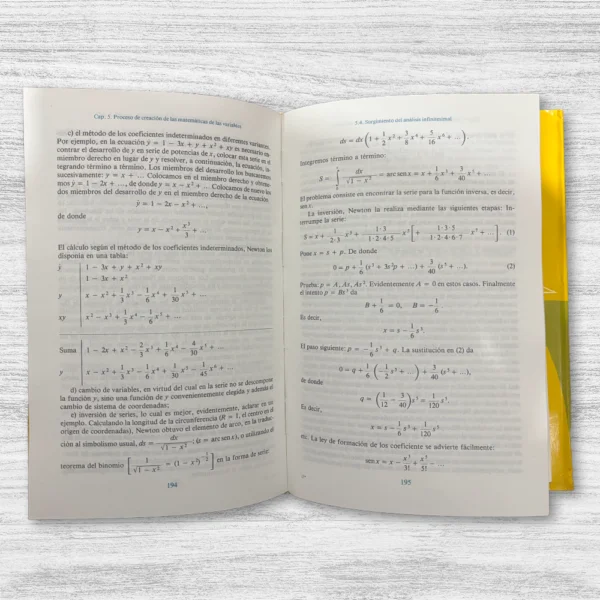 Cap. 5. Proceso de creación de las matemáticas de las variables
c) el método de los coeficientes indeterminados en diferentes variantes.
Por ejemplo, en la ecuación ẏ = 1 − 3x + y + x² + xy es necesario en-
contrar el desarrollo de y en serie de potencias de x, colocar esta serie en el
miembro derecho en lugar de y y resolver, a continuación, la ecuación, in-
tegrando término a término. Los miembros del desarrollo los buscaremos
sucesivamente: y = x + ... Colocamos en el miembro derecho y obtene-
mos ẏ = 1 − 2x + ..., de donde y = x − x² + ... Colocamos de nuevo los
dos miembros del desarrollo de y en el miembro derecho de la ecuación
ẏ = 1 − 2x − x² + ...,
de donde
y = x − x² + x³/3 + ...
El cálculo según el método de los coeficientes indeterminados, Newton los
disponía en una tabla:
ẏ | 1 − 3x + y + x² + xy
1 − 3x + x²
y | x − x² + 1/3 x³ − 1/6 x⁴ + 1/30 x⁵ + ...
xy | x² − x³ + 1/3 x⁴ − 1/6 x⁵ + ...
Suma | 1 − 2x + x² − 2/3 x³ + 1/6 x⁴ − 4/30 x⁵ + ...
y | x − x² + 1/3 x³ − 1/6 x⁴ + 1/30 x⁵ − 1/45 x⁶ + ...
d) cambio de variables, en virtud del cual en la serie no se descompone
la función y, sino una función de y convenientemente elegida y además el
cambio de sistema de coordenadas;
e) inversión de series, lo cual es mejor, evidentemente, aclarar en un
ejemplo. Calculando la longitud de la circunferencia (R = 1, el centro en el
origen de coordenadas), Newton obtuvo el elemento de arco, en la traduc-
ción al simbolismo usual, ds = dx/√(1 − x²); (s = arc sen x), y utilizando el
teorema del binomio [1/√(1 − x²) = (1 − x²)^(−1/2)] en la forma de serie:
194
5.6. Surgimiento del análisis infinitesimal
ds = dx (1 + 1/2 x² + 3/8 x⁴ + 5/16 x⁶ + ...).
Integremos término a término:
S = ∫ dx/√(1 − x²) = arc sen x = x + 1/6 x³ + 3/40 x⁵ + ...
El problema consiste en encontrar la serie para la función inversa, es decir,
sen x.
La inversión, Newton la realiza mediante las siguientes etapas: In-
terrumpe la serie:
S = x + 1/2·3 x³ + 1·3/1·2·4·5 x⁵ [+ 1·3·5/1·2·4·6·7 x⁷ + ...]. (1)
Pone x = s + p. De donde
0 = p + 1/6 (s³ + 3s²p + ...) + 3/40 (s⁵ + ...). (2)
Prueba: p = A, As, As². Evidentemente A = 0 en estos casos. Finalmente
el intento p = Bs³ da
B + 1/6 = 0, B = −1/6
Es decir,
x = s − 1/6 s³.
El paso siguiente: p = −1/6 s³ + q. La sustitución en (2) da
0 = q + 1/6 (−1/2 s⁵ + ...) + 3/40 (s⁵ + ...),
de donde
q = (1/12 − 3/40) s⁵ = 1/120 s⁵.
Es decir,
x = s − 1/6 s³ + 1/120 s⁵
etc. La ley de formación de los coeficiente se advierte fácilmente:
sen x = x − x³/3! + x⁵/5! − ...
195